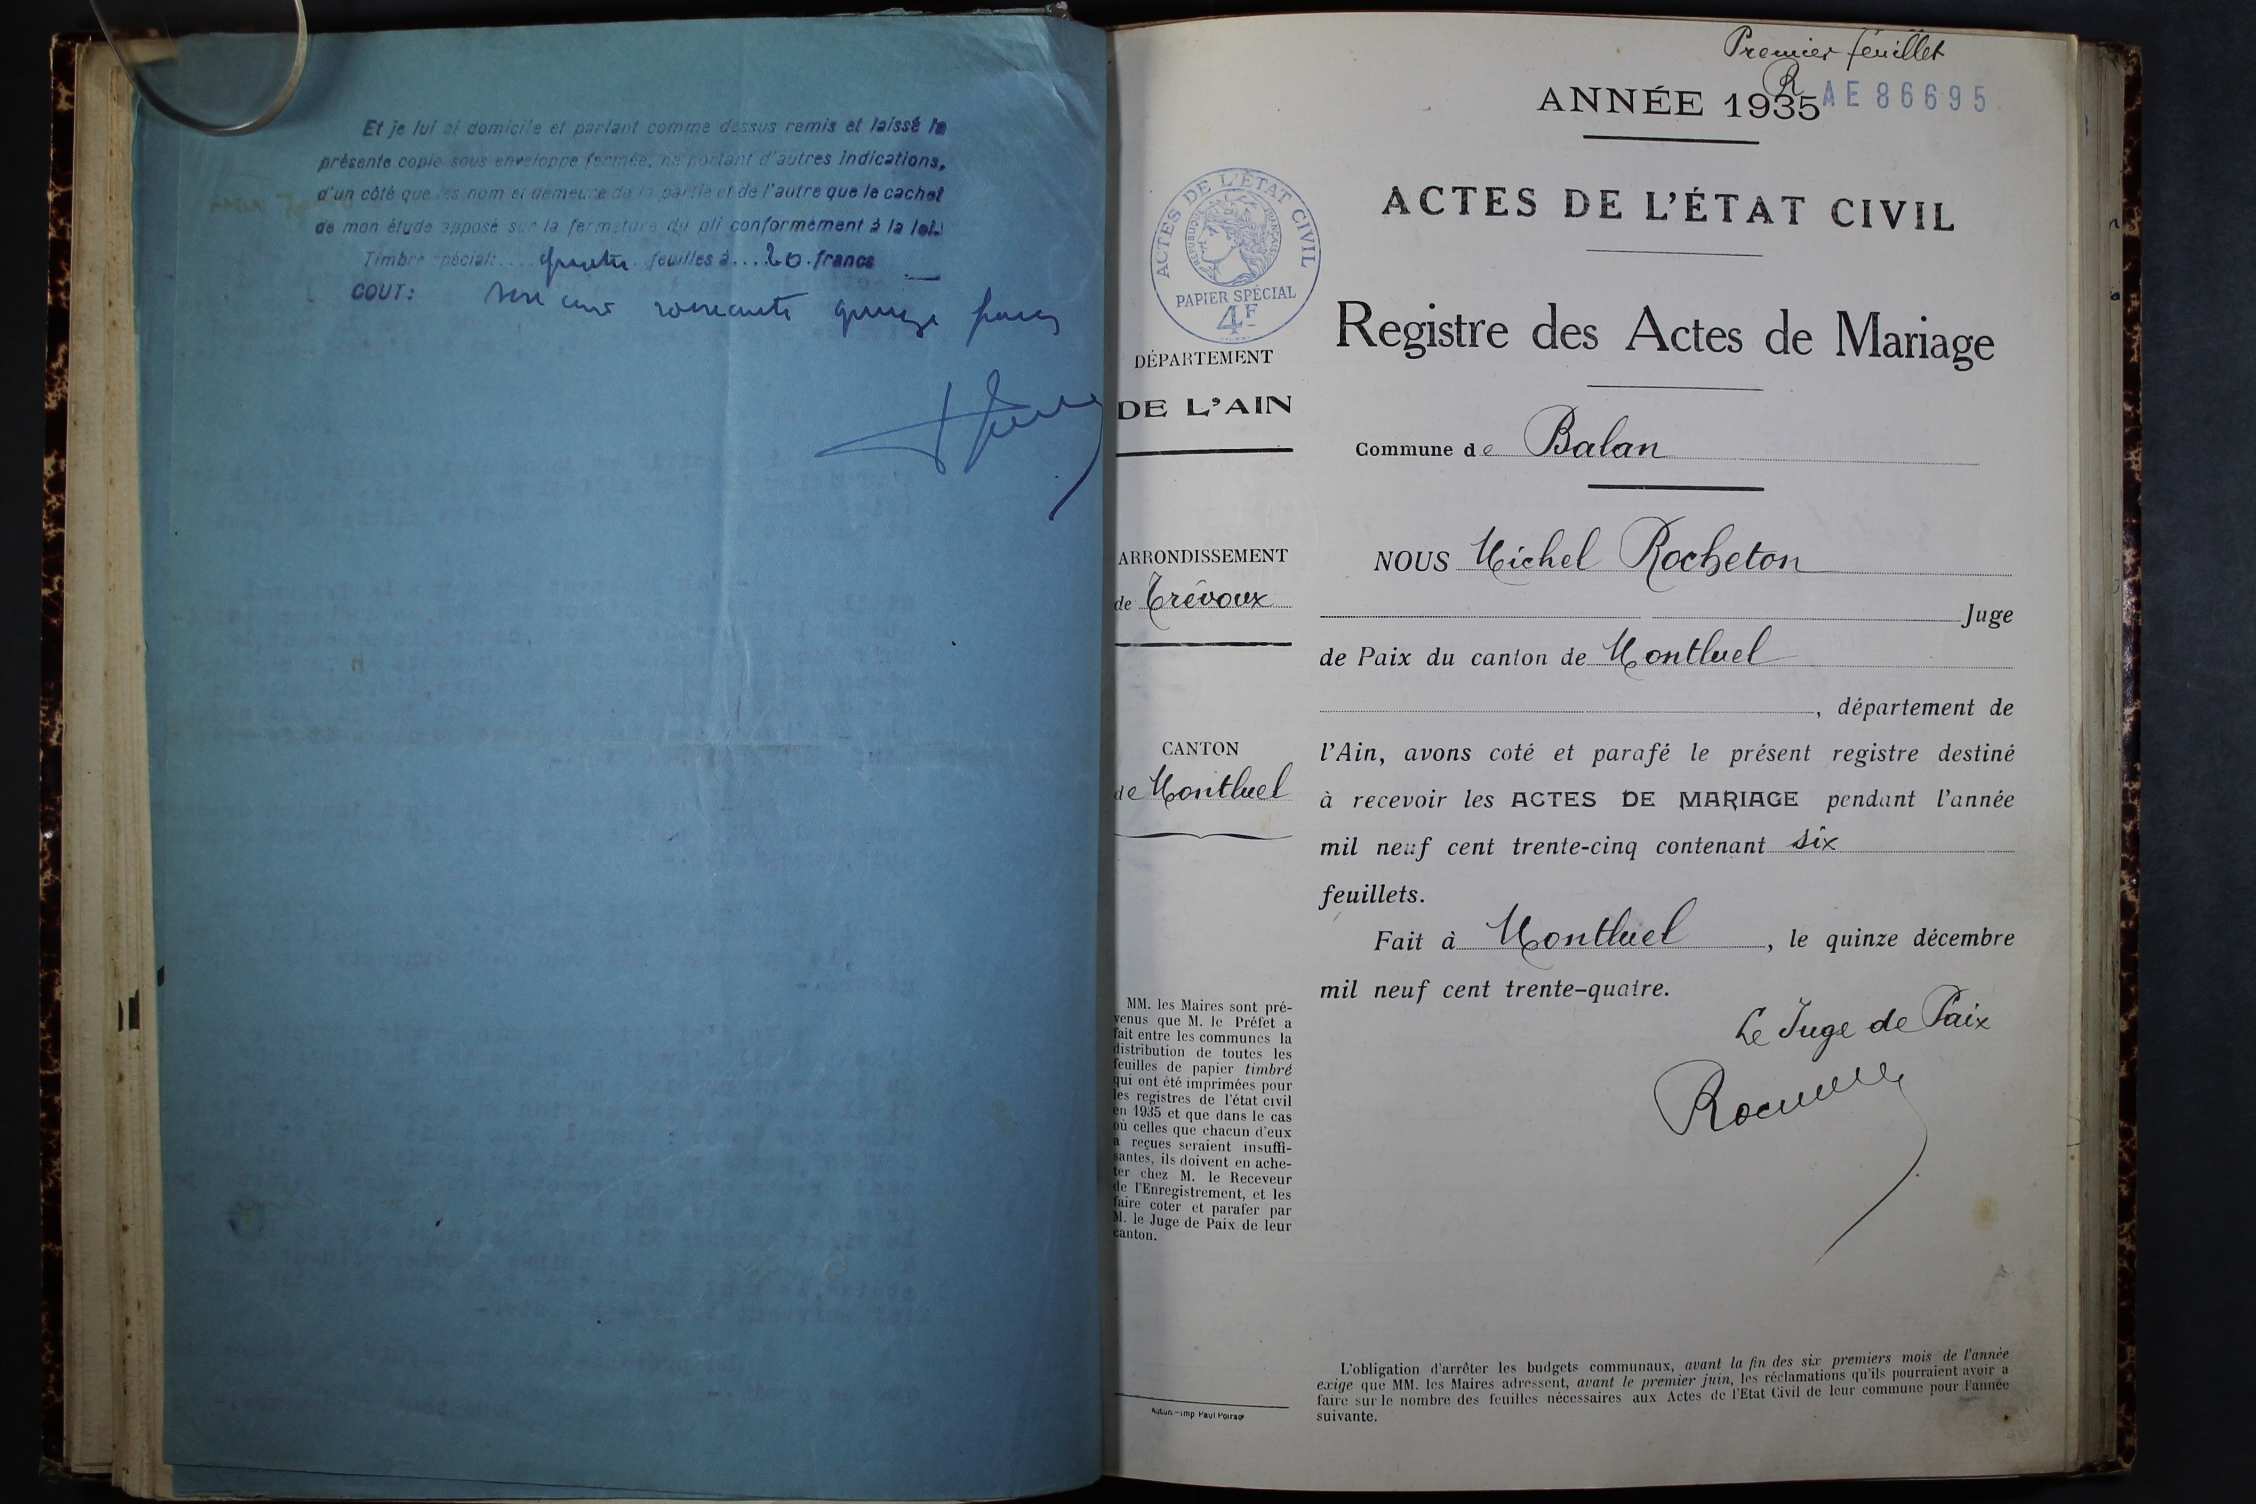 Et je lui ai domicile et parlant comme dessus remis et laissé la
présente copie sous enveloppe fermée, ne portant d'autres indications,
d'un côté que les nom et demeure de la partie et de l'autre que le cachet
de mon étude apposé sur la fermeture du pli conformément à la loi.
Timbre spécial: feuilles à 20 francs
COUT: soixante quinze francs
Premier feuillet
R
ANNÉE 1935 AE 86695
ACTES DE L'ÉTAT CIVIL
ACTES DE L'ÉTAT CIVIL
PAPIER SPÉCIAL
4F
Registre des Actes de Mariage
DÉPARTEMENT
DE L'AIN
Commune de Balan
ARRONDISSEMENT
de Trévoux
CANTON
de Montluel
NOUS Michel Rocheton
Juge
de Paix du canton de Montluel
, département de
l'Ain, avons coté et parafé le présent registre destiné
à recevoir les ACTES DE MARIAGE pendant l'année
mil neuf cent trente-cinq contenant six
feuillets.
Fait à Montluel, le quinze décembre
mil neuf cent trente-quatre.
Le Juge de Paix
MM. les Maires sont pré-
venus que M. le Préfet a
fait entre les communes la
distribution de toutes les
feuilles de papier timbré
qui ont été imprimées pour
les registres de l'état civil
en 1935 et que dans le cas
où celles que chacun d'eux
a reçues seraient insuffi-
santes, ils doivent en ache-
ter chez M. le Receveur
de l'Enregistrement, et les
faire coter et parafer par
M. le Juge de Paix de leur
canton.
Autun.-Imp. Paul Poirson
L'obligation d'arrêter les budgets communaux, avant la fin des six premiers mois de l'année
exige que MM. les Maires adressent, avant le premier juin, les réclamations qu'ils pourraient avoir a
faire sur le nombre des feuilles nécessaires aux Actes de l'Etat Civil de leur commune pour l'année
suivante.